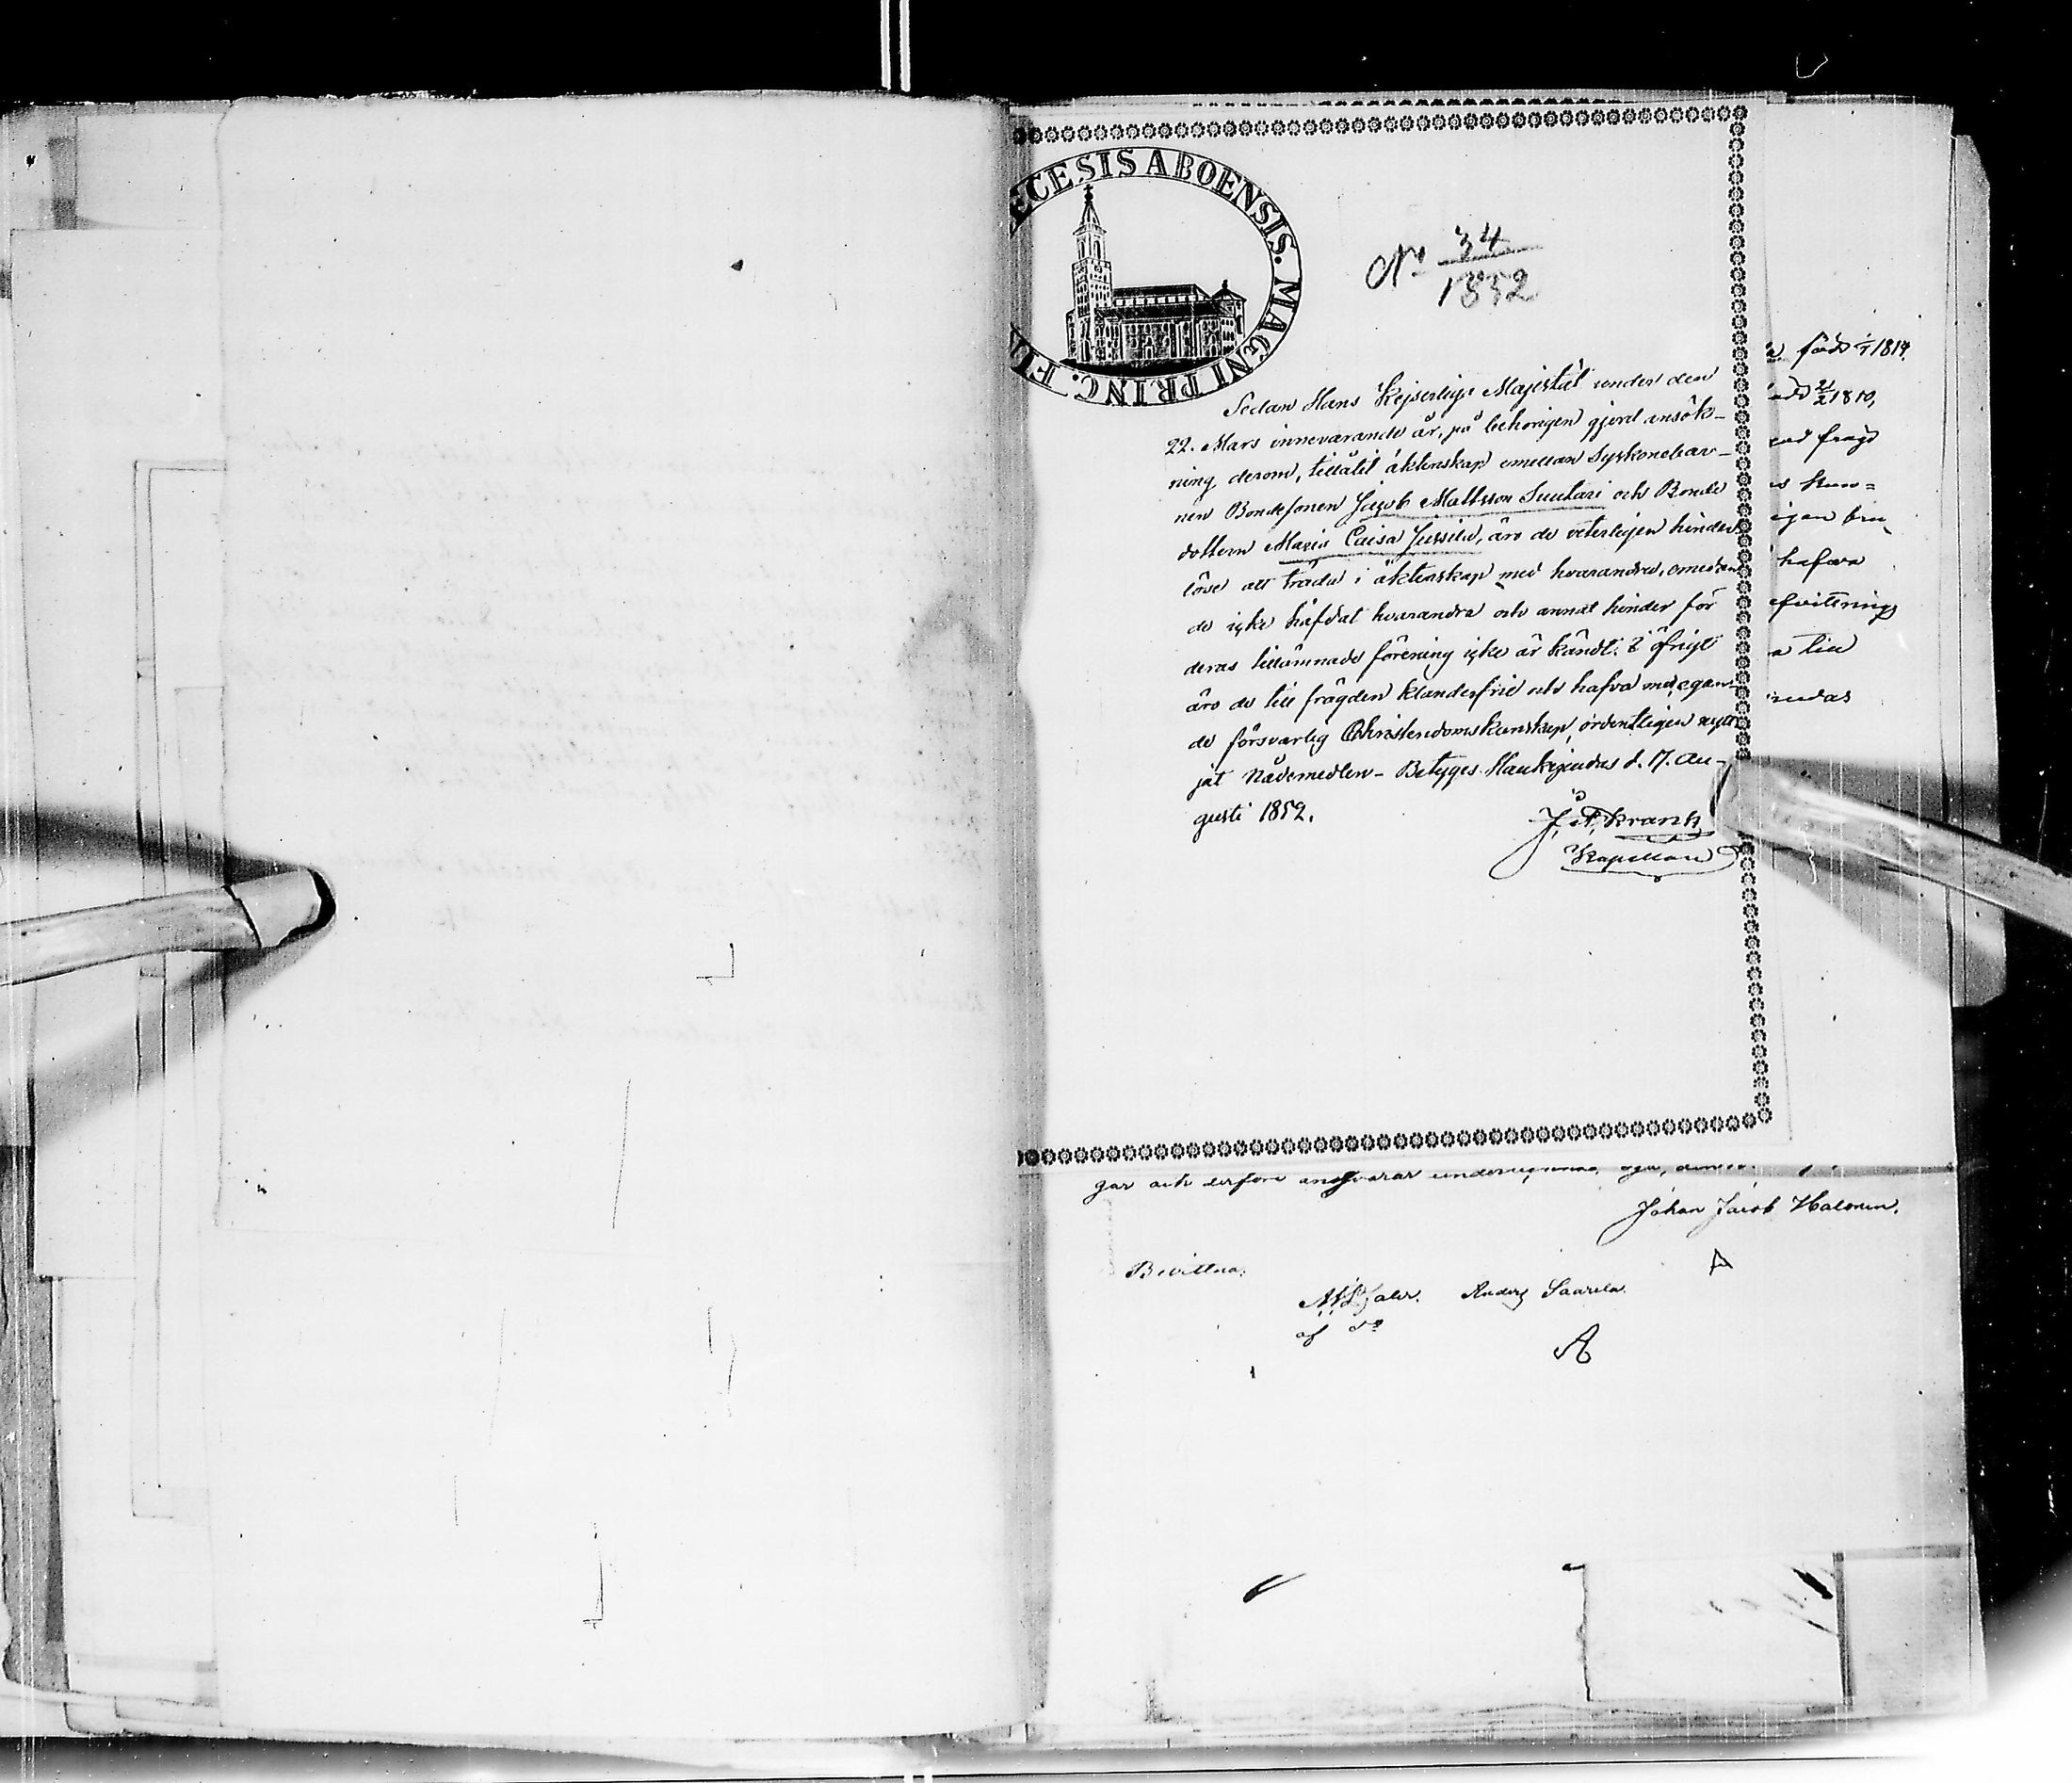 ECESIS ABOENSIS. MAGNI PRINC. FI
No 34
1852
Sedan Hans Kejserliga Majestät under den
22. Mars innevarande år, på behörigen gjord ansök-
ning derom, tillåtit äktenskap emellan Syskonebar-
nen Bondesonen Jacob Mattsson Suutari och Bonde
dottern Maria Caisa Jussila, äro de veterligen hinder
löse att träda i äktenskap med hvarandra, omedan
de icke häfdat hvarandra och annat hinder för
deras tillämnade förening icke är kändt. I öfrigt
äro de till frägden klanderfrie och hafva med egan-
de försvarlig Christendomskunskap, ordentligen nytt
jat Nådemedlen - Betyges Haukipudas d. 17. Au-
gusti 1852.
Krank
Kapellan
född 1/1 1814.
2/2 1810,
frägd
kun=
hafva
till
gar och derföre ansvarar
Johan Jacob Halonen.
Bevittna:
Anders Saarela.
af
A
A